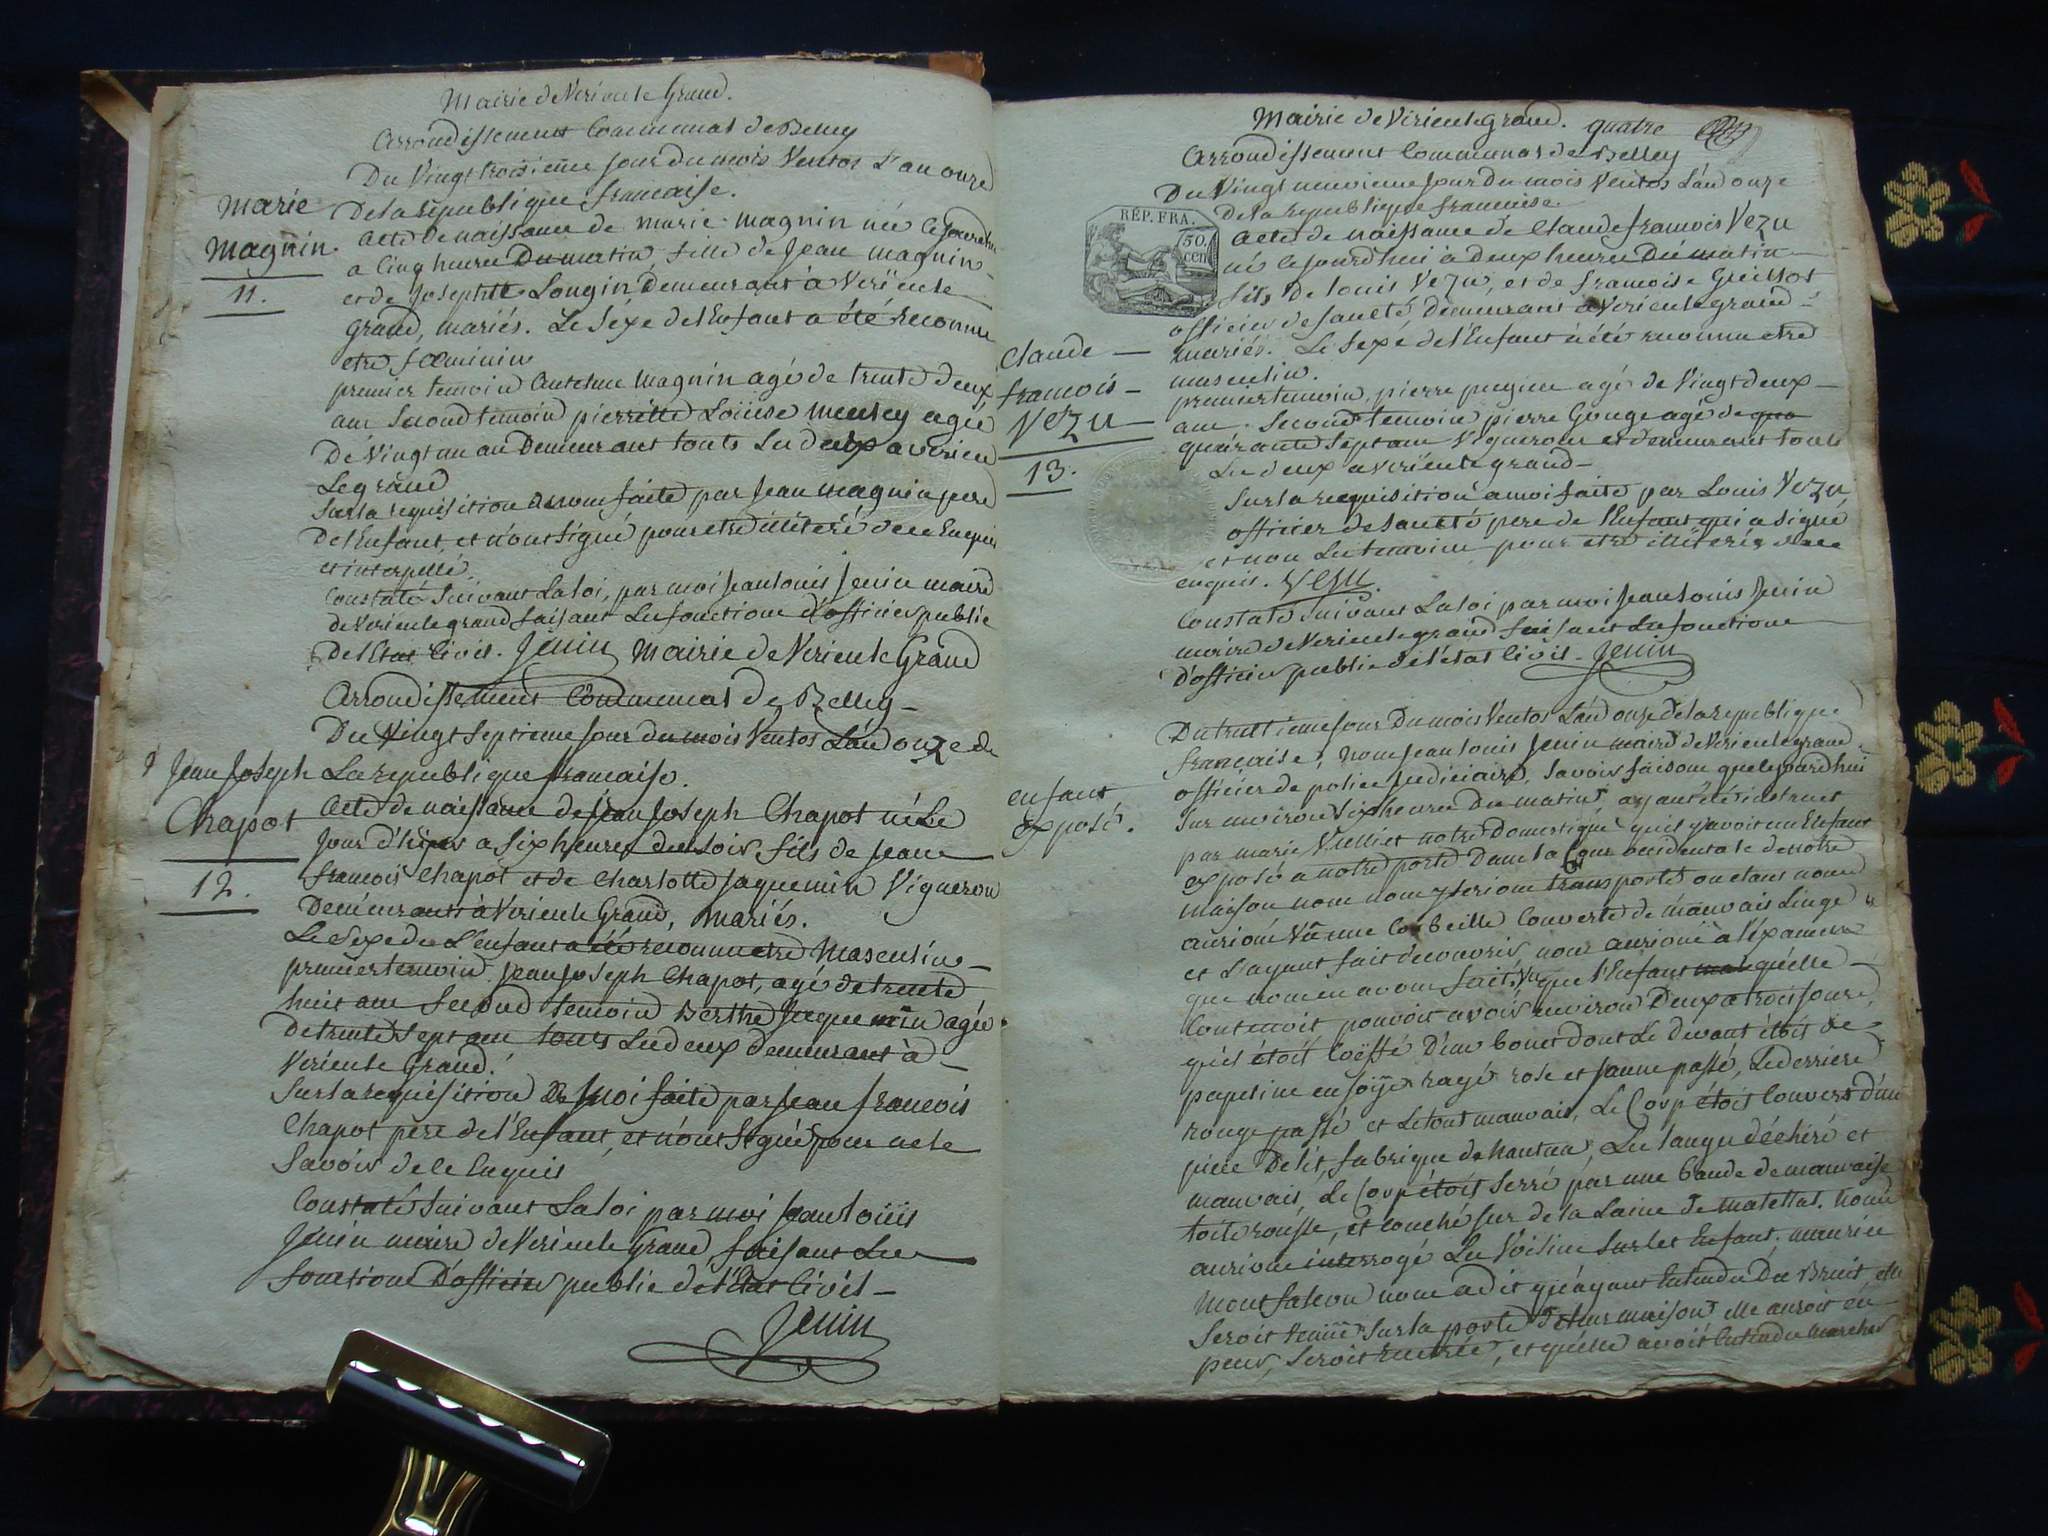 Mairie de Virieu le Grand.
Arrondissement Communal de Belley
Du Vingt troisieme jour du mois Ventos L'an onze
De la republique francaise.
Marie
Magnin.
11.
Acte De naissance de marie magnin née Cejourdhui
a Cinq heures Du matin, fille de Jean magnin
et de Josephtte Longin Demeurant à Verieu le
Grand, mariés. Le Séxe de l'Enfant a été reconnu
etre foeminin
premier temoin Antelme Magnin agé de trente deux
ans Second temoin pierrette Loüise mercey agée
De Vingt un an Demeurant touts Les deux a virieu
Le grand
Sur la requisition a nous faite par Jean magnin pere
De l'Enfant, et n'ont Signé pour etre illiteré de ce Enquis
et interpellé.
Constaté Suivant La loi, par moi Jean louis Jenin maire
de Verieu le grand faisant Les fonctions d'officier public
De l'Etat Civil. Jenin Mairie de Virieu le Grand
Arrondissement Communal de Belley
Du Vingt Septieme jour du mois Ventos L'an onze de
La republique francaise.
Jean Joseph
Chapot
12.
Acte de naissance de Jean Joseph Chapot né Le
Jour d'hiers a Six heures du soir fils de Jean
francois Chapot et de Charlotte Jaquemin Vigneron
Demeurants à Virieu le Grand, mariés.
Le Sexe de L'enfant a été reconnu etre Masculin
premier temoin Jean Joseph Chapot, agé de trente
huit ans Second temoin Berthe Jaquemin agée
De trente Sept ans touts Les deux demeurant à
Virieu le Grand.
Sur la requisition a moi faite par Jean francois
Chapot pere de l'Enfant, et n'ont Signé pour ne le
Savoir de Ce Enquis
Constaté Suivant La loi par moi Jean loüis
Jenin maire de Virieu le Grand faisant Les
fonctions D'officier public de l'Etat Civil
Jenin
Mairie de Virieu le grand. quatre
Arrondissement Communal de Belley
Du Vingt neuvieme jour Du mois Ventos L'an onze
De la republique francaise.
RÉP. FRA.
50.
cen
Claude
francois
Vezu
13.
Acte de naissance de Claude francois Vezu
né Cejourdhui à deux heures Du matin
fils De louis Vezu, et de francoise Guillot
officier de Santé Demeurant a Virieu le grand
mariés. Le Sexe de l'Enfant à été reconnu etre
masculin.
premier temoin, pierre pugieu agé de Vingt deux
ans. Second temoin pierre Gouge agé de qua
quarante Sept ans Vignerons et demeurant touts
Les deux a virieu le grand
Sur la requisition a moi faite par Louis Vezu
officier de Santé pere de l'Enfant qui a signé
et non Les temoins pour etre illiterés de ce
enquis. Vezu
Constaté Suivant La loi par moi Jean louis Jenin
maire de Virieu le grand faisant Les fonctions
d'officier public de l'état Civil. Jenin
Du trentieme jour Du mois Ventos L'an onze de la republique
francaise, nous Jean louis Jenin maire de Virieu le grand
officier de police Judiciaire, Savoir faisons que cejourdhui
enfant
exposé.
Sur environ Six heures Du matin, ayant été instruit
par marie notre Domestique qu'il y avoit un Enfant
exposé a notre porte Dans la Cour occidentale de notre
maison nous nous y Serions transporté ou etans nous
aurions Vû une Corbeille Couverte de mauvais Linge
et L'ayant fait découvrir, nous aurions a l'éxamen
que nous en avons fait, Vu que l'Enfant qu'elle
Contenoit pouvoit avoir environ Deux a trois Jours,
qu'il étoit Coëffé D'un bonet dont Le devant étoit de
papeline en Soije rayé rose et Jaune passé, Le derriere
rouge passé et Le tout mauvais, Le Corp étoit Couvert d'une
piece De lit, fabrique de nantua, Les langes déchiré et
mauvais, Le Corp étoit Serré par une bande de mauvaise
toile rousse, et couché sur de la Laine de matellat. nous
aurions interrogé Les Voisins Sur l'Enfant.
Montfalcon nous a dit qu'ayant Entendu Du Bruit, elle
Seroit Sur la porte De leur maison elle auroit eu
peur, Seroit rentrée, et qu'elle avoit Entendu marcher